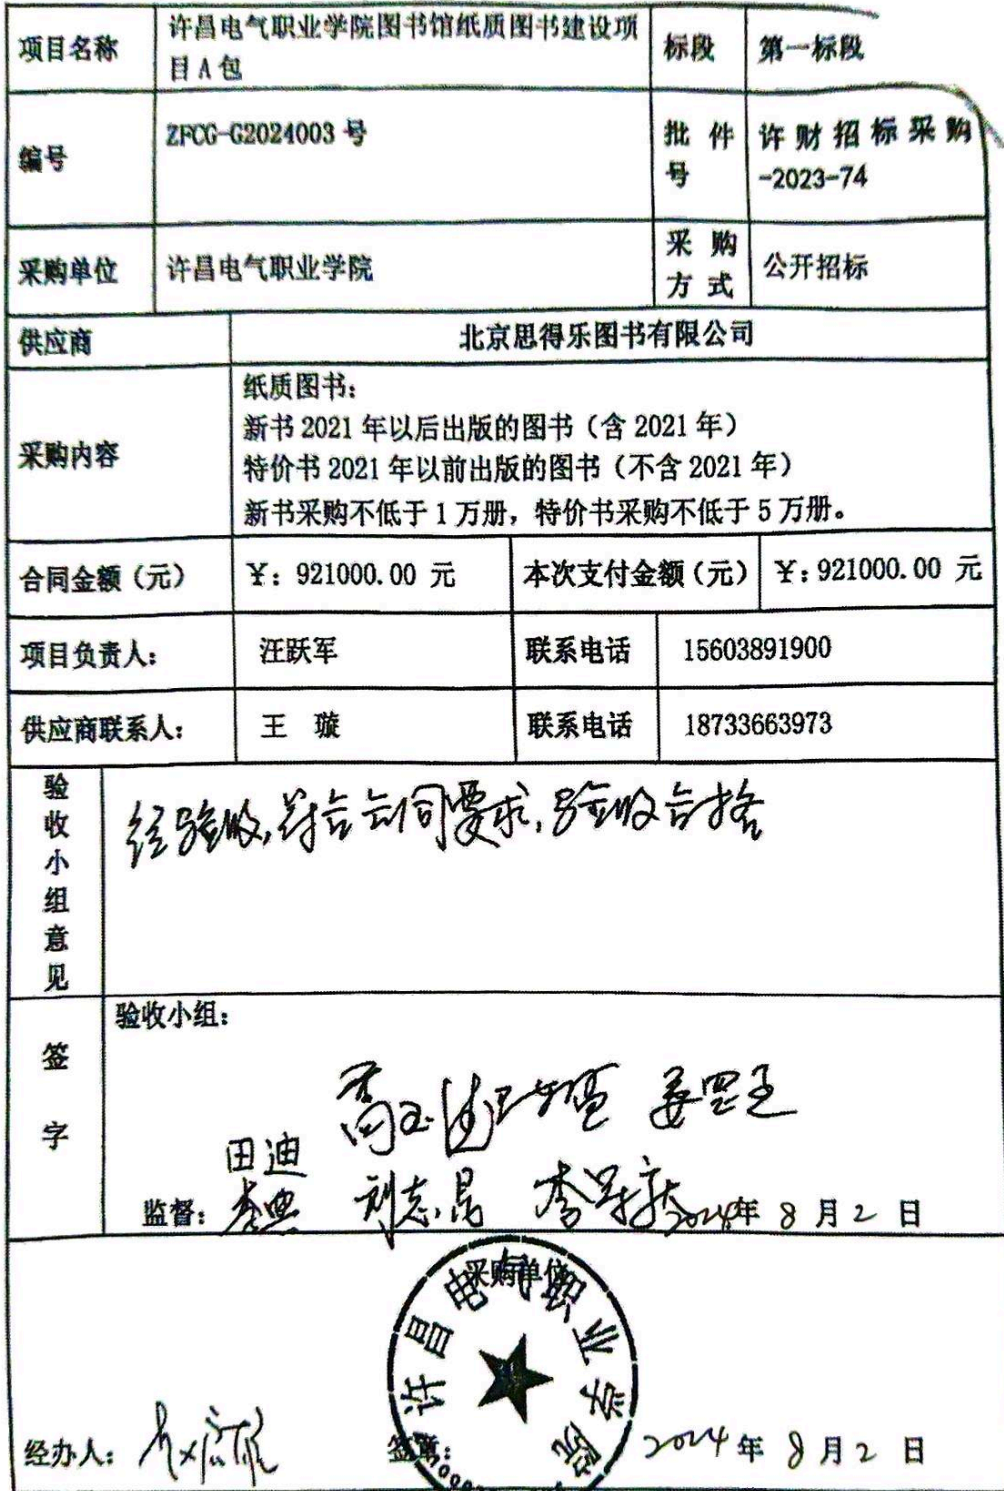 项目名称 许昌电气职业学院图书馆纸质图书建设项目A包 标段 第一标段
编号 ZFCG-G2024003号 批件号 许财招标采购-2023-74
采购单位 许昌电气职业学院 采购方式 公开招标
供应商 北京思得乐图书有限公司
采购内容
纸质图书：
新书2021年以后出版的图书（含2021年）
特价书2021年以前出版的图书（不含2021年）
新书采购不低于1万册，特价书采购不低于5万册。
合同金额（元） ￥：921000.00 元 本次支付金额（元） ￥：921000.00 元
项目负责人： 汪跃军 联系电话 15603891900
供应商联系人： 王 璇 联系电话 18733663973
验收小组意见
经验收,符合合同要求,验收合格
签字
验收小组：
田迪
监督： 刘志昌 2024年8月2日
采购单位
许昌电气职业学院
经办人： 签章： 2024年8月2日